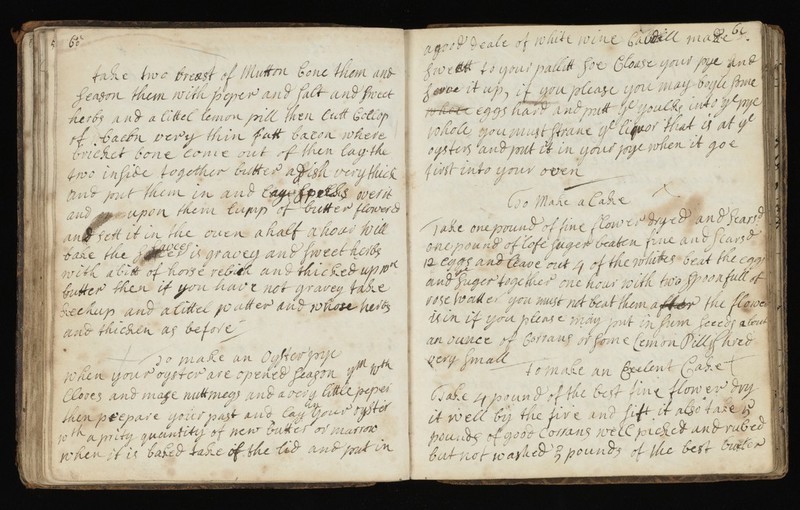 60
take two breast of Mutton bone them and
season them with peper and salt and sweet
herbs and a littel lemon pill then Cutt Collop
of bacon very thin putt bacon where
bricket bone come out of then lay the
two inside together butter a dish very thick
and put them in and lay overit
and upon them lump of butter flowerd
and sett it in the oven a half a hour will
bake the is gravey and sweet herbs
with a bitt of horse redich and thicked up wth
butter then if you have not gravey take
ketchup and a littel watter and whole herbs
and thicken as before
To make an Oyster pye
when your oyster are opened season ym wth
Cloves and mase nuttmegs and a very little peper
then prepare your past and lay in your oyster
wth a prity quantity of new butter or marrow
when it is baked take off the lid and put in
61
a good deale of white wine Caudell made
sweett to your pallitt soe Close your pye and
serve it up, if you please you may boyle some
eggs hard and putt ye youlks into ye pye
whole you must straine ye liquor that is at ye
oysters and put it in your pye when it goe
first into your oven
To Make a Cake
Take one pound of fine flower dryed and searsd
one pound of lofe suger beaten fine and searsd
12 eggs and leave out 4 of the whites beat the eggs
and suger together one hour with two spoonfull of
rose watter you must not beat them after the flower
is in if you please may put in sum seeds about
an ounce of Corrans or some Lemon Pill shred
very small
To make an Exelent Cake
Take 4 pound of the best fine flower dry
it well by the fire and sift it also take
pounds of good Corrans well picked and rubed
but not washed 3 pounds of the best butter